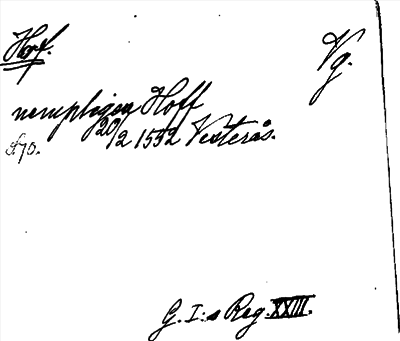 Hof. Vg.
nerupligen Hoff
20/2 1552 Vesterås.
G. I:s Reg. XXIII.